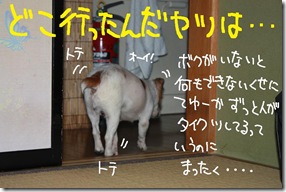 どこ行ったんだヤツは・・・
トテ
オーイ!
トテ
ボクがいないと
何もできないくせに
てゆーか ずっとんが
タイクツしてるって
いうのに
まったく・・・・